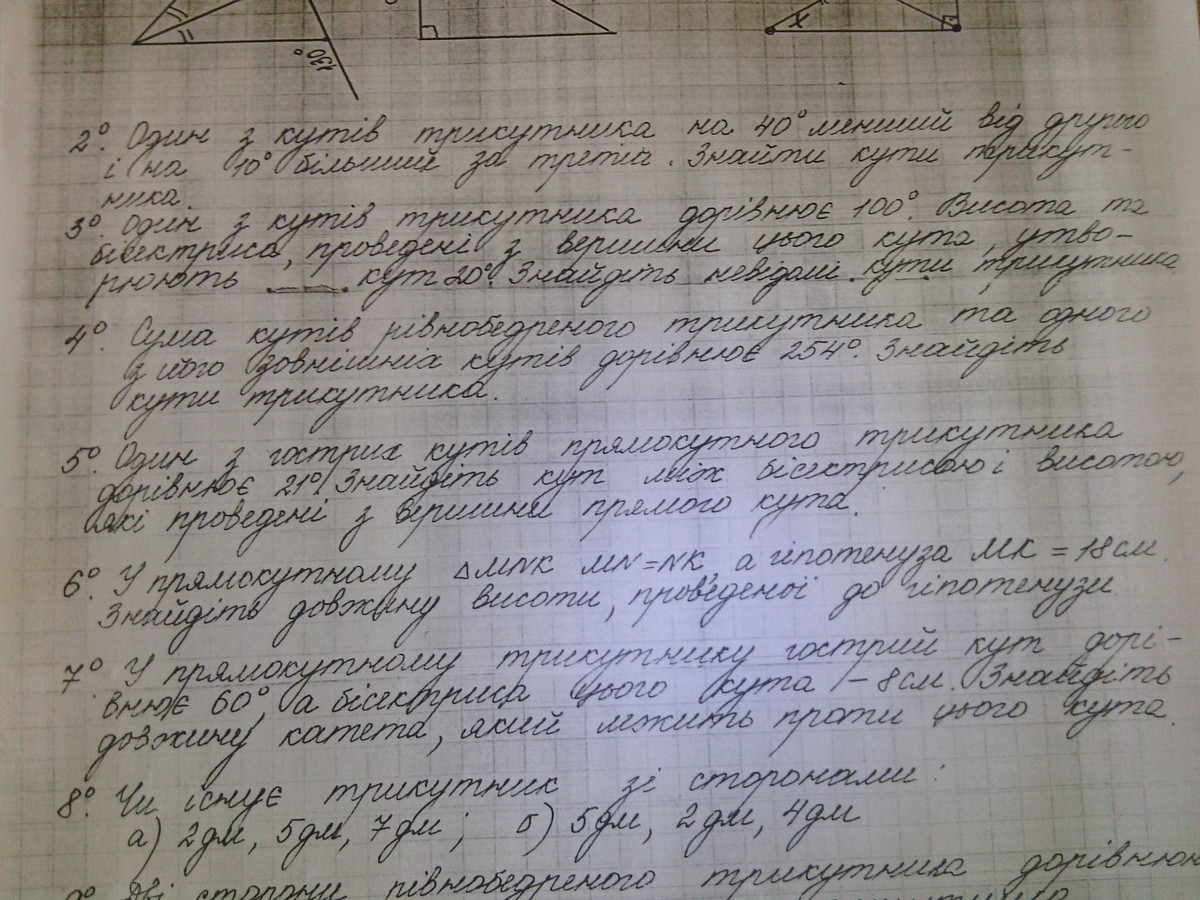 130°
x
2° Один з кутів трикутника на 40° менший від другого
і на 10° більший за третій. Знайти кути трикут-
ника.
3° Один з кутів трикутника дорівнює 100°. Висота та
бісектриса, проведені з вершини цього кута, утво-
рюють ____ кут 20°. Знайдіть невідомі кути трикутника
4° Сума кутів рівнобедреного трикутника та одного
з його зовнішніх кутів дорівнює 254°. Знайдіть
кути трикутника.
5° Один з гострих кутів прямокутного трикутника
дорівнює 21°. Знайдіть кут між бісектрисою і висотою,
які проведені з вершини прямого кута.
6° У прямокутному △MNK MN=NK, а гіпотенуза MK = 18 см.
Знайдіть довжину висоти, проведеної до гіпотенузи.
7° У прямокутному трикутнику гострий кут дорі-
внює 60°, а бісектриса цього кута – 8 см. Знайдіть
довжину катета, який лежить проти цього кута.
8° Чи існує трикутник зі сторонами:
а) 2 дм, 5 дм, 7 дм; б) 5 дм, 2 дм, 4 дм
9° Дві сторони рівнобедреного трикутника дорівнюю